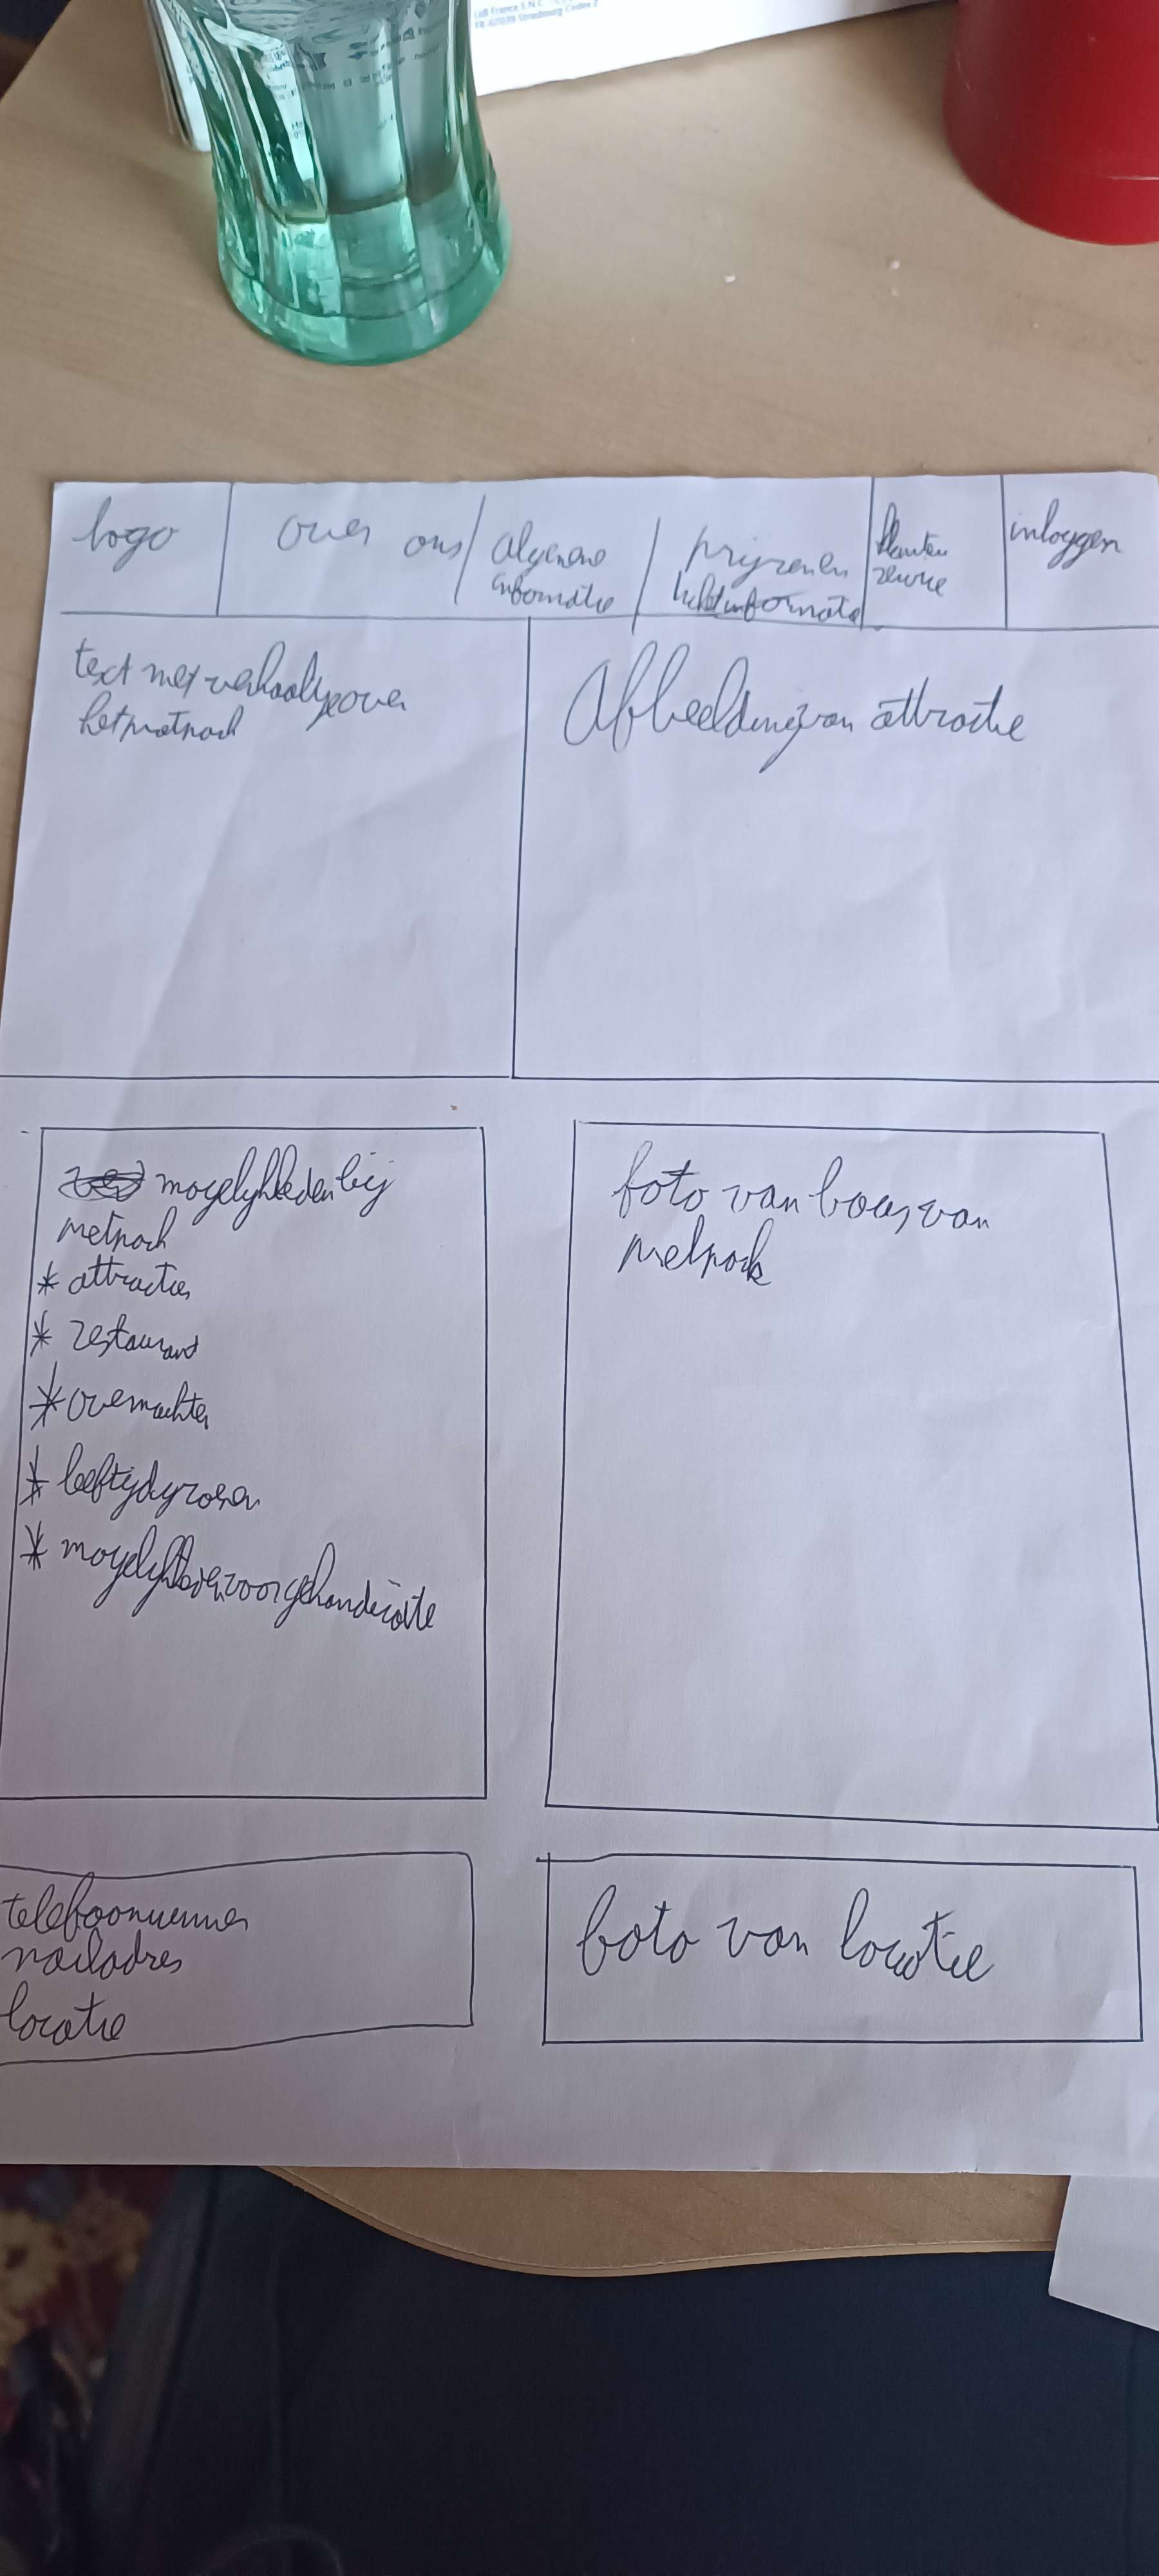 Lidl France S.N.C.
FR-67039 Strasbourg Cedex 2
logo
over ons
algemene
informatie
prijzen en
ticketinformatie
klanten
service
inloggen
text met verhaaltje over
het pretpark
Afbeelding van attractie
mogelijkheden bij
pretpark
* attracties
* restaurant
* overnachten
* leeftijdsgroepen
* mogelijkheden voor gehandicapte
foto van bouw van
pretpark
telefoonnummer
mailadres
locatie
foto van locatie